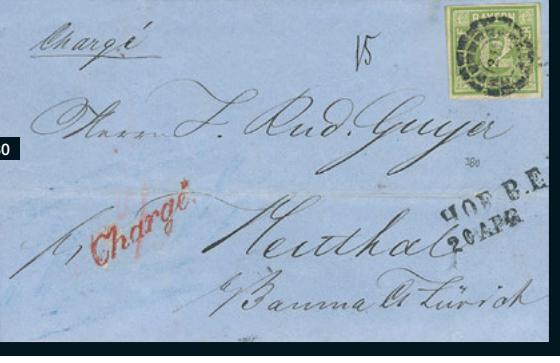 Chargé
15
BAYERN
12
Herrn J. Rud. Guyer
380
Chargé.
HOF B.
Neuthal
20 APR
p/ Bauma Ct Zürich